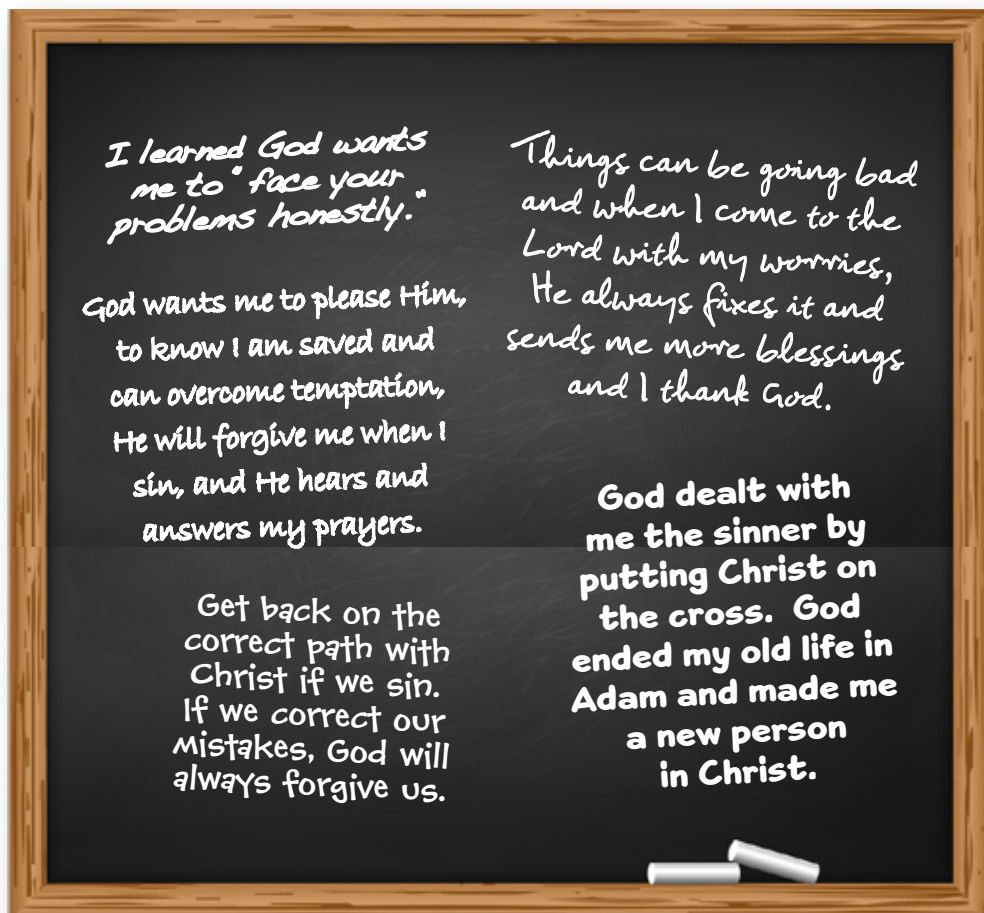 I learned God wants
me to "face your
problems honestly."
God wants me to please Him,
to know I am saved and
can overcome temptation,
He will forgive me when I
sin, and He hears and
answers my prayers.
Get back on the
correct path with
Christ if we sin.
If we correct our
mistakes, God will
always forgive us.
Things can be going bad
and when I come to the
Lord with my worries,
He always fixes it and
sends me more blessings
and I thank God.
God dealt with
me the sinner by
putting Christ on
the cross.  God
ended my old life in
Adam and made me
a new person
in Christ.